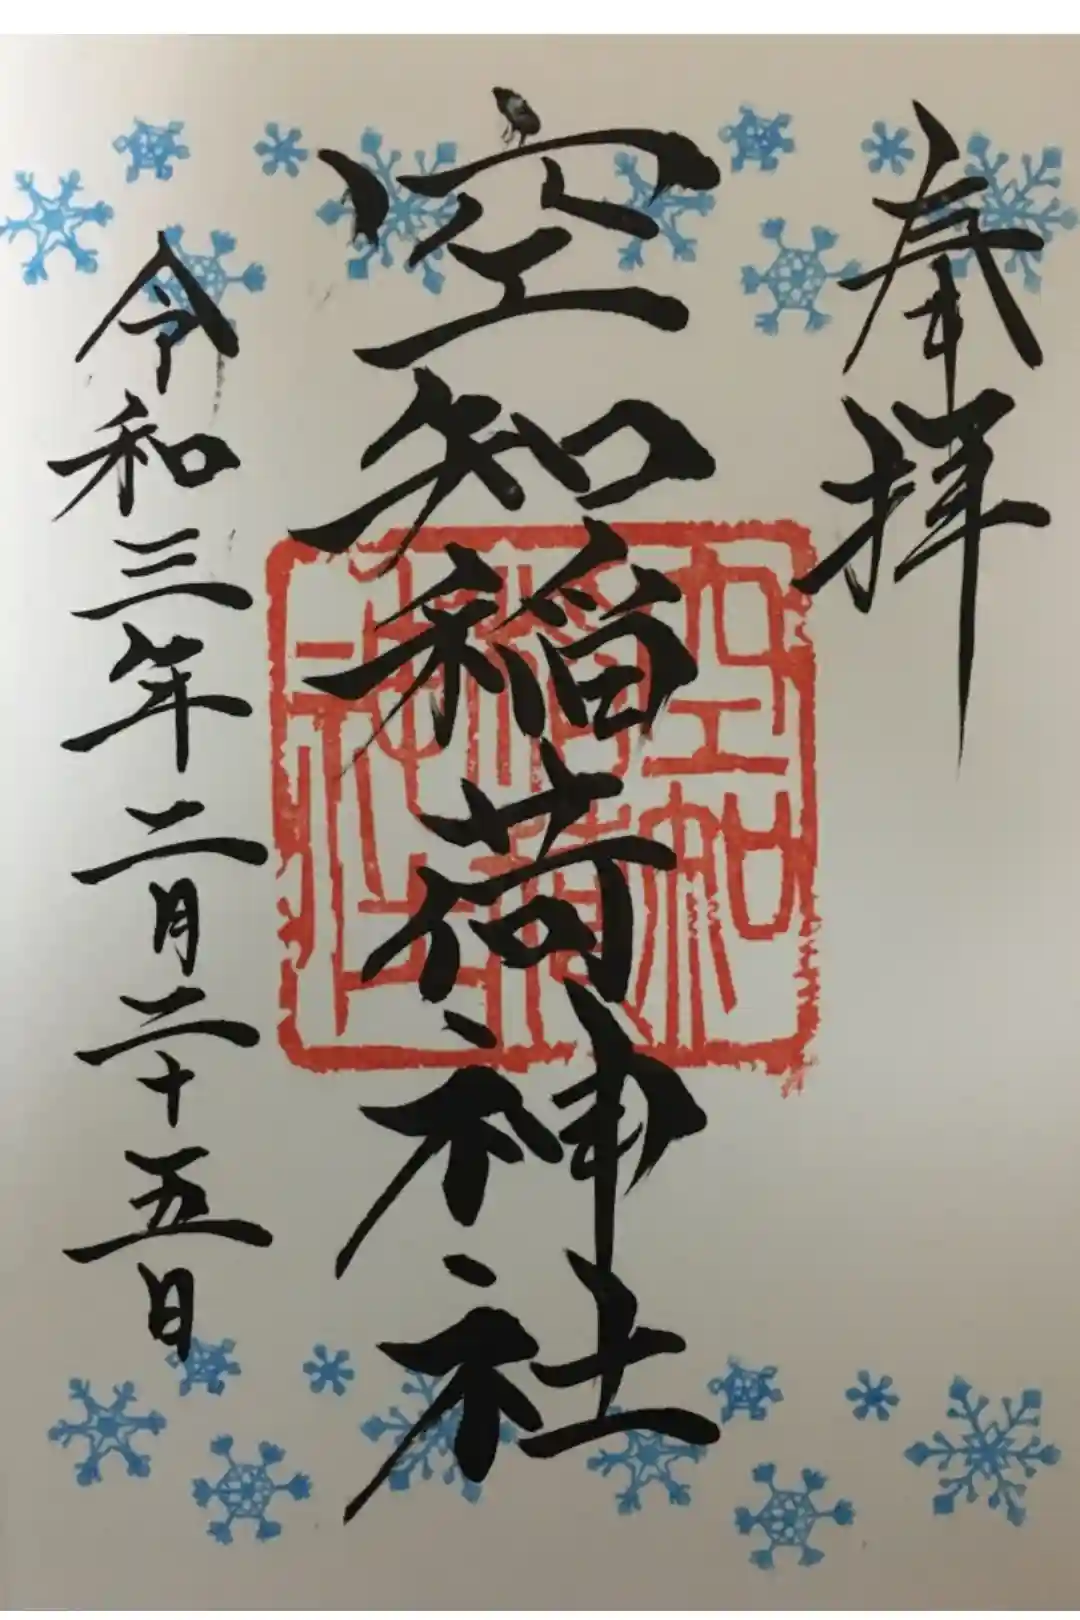 奉拝
空知稲荷神社
令和三年二月二十五日
空知
稲荷
神社